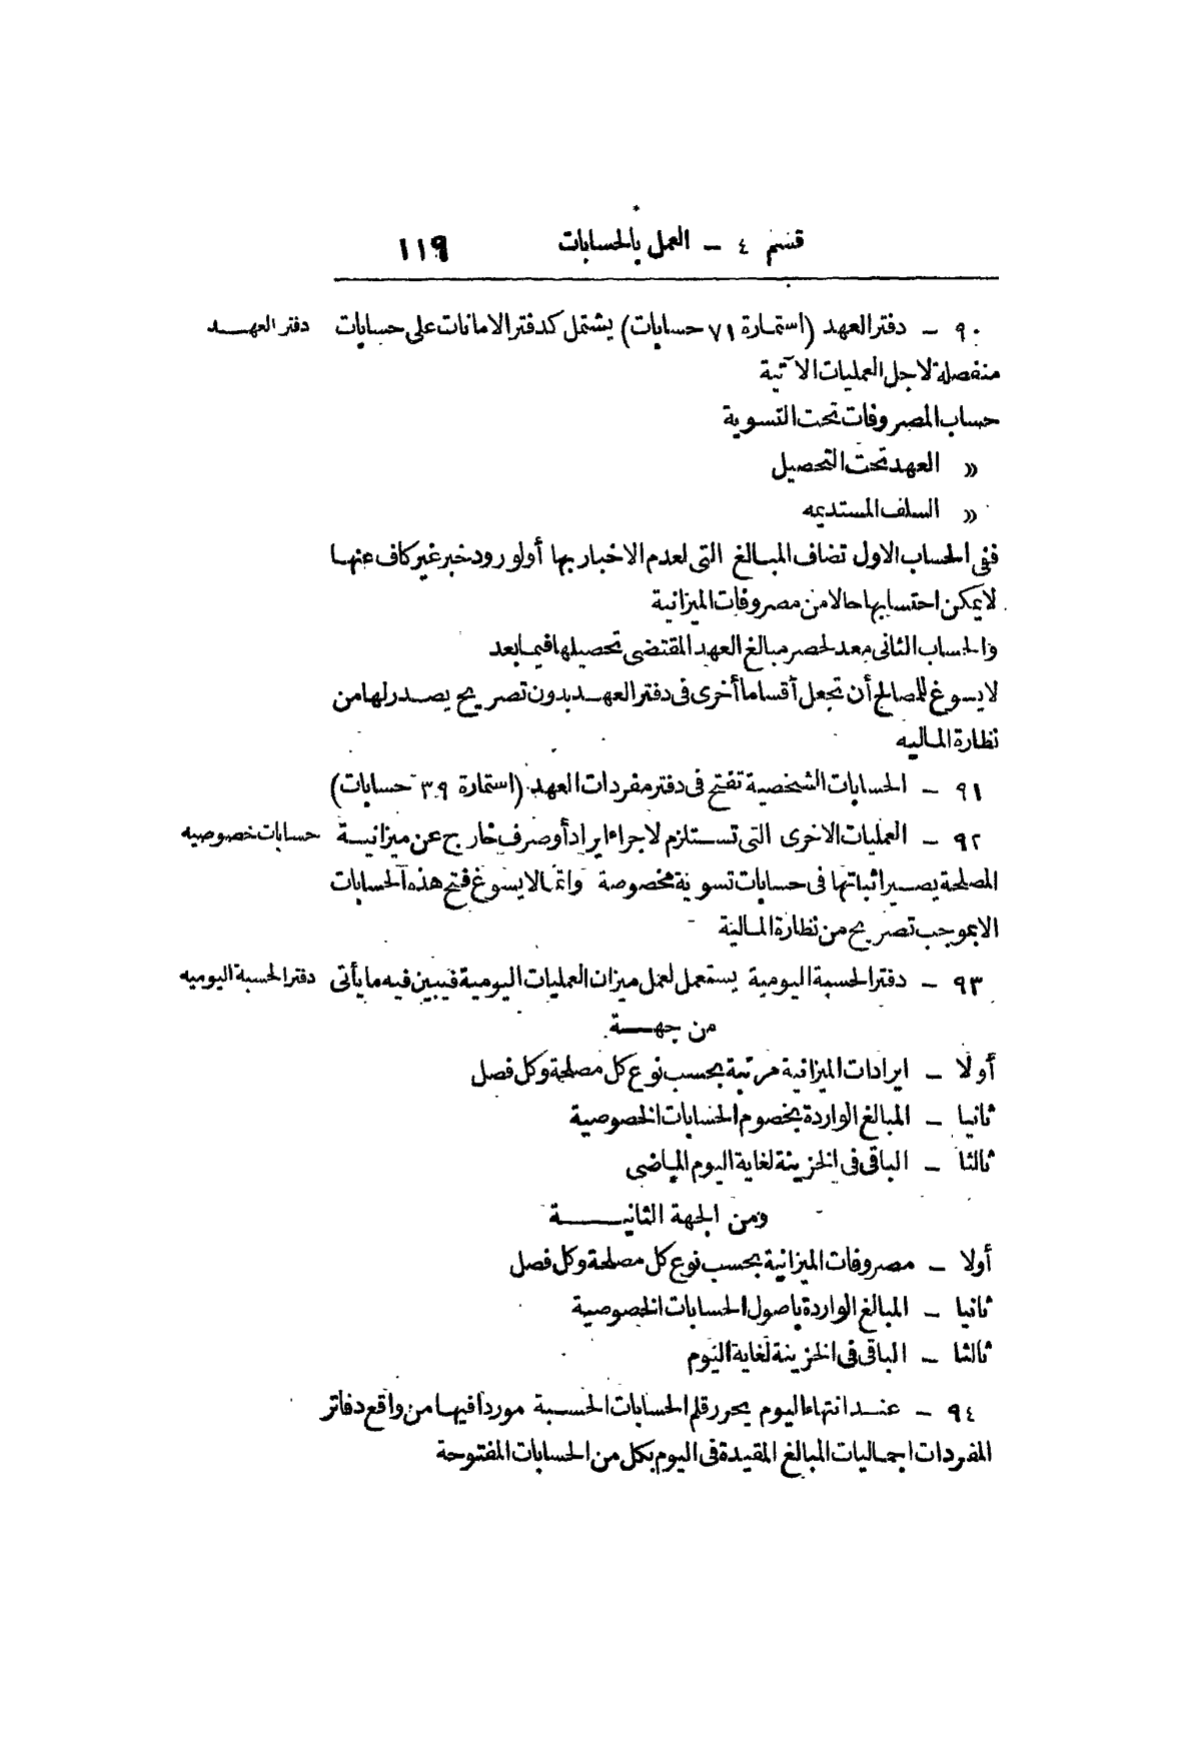 قسم ٤ – العمل بالحسابات ١١٩
٩٠ – دفتر العهد (استمارة ٧١ حسابات) يشتمل كدفتر الامانات على حسابات دفتر العهد
منفصلة لاجل العمليات الآتية
حساب المصروفات تحت التسوية
» العهد تحت التحصيل
» السلف المستديمه
ففى الحساب الاول تضاف المبالغ التى لعدم الاخبار بها أو لورود خبر غير كاف عنها
لا يمكن احتسابها حالا من مصروفات الميزانية
والحساب الثانى معد لحصر مبالغ العهد المقتضى تحصيلها فيما بعد
لا يسوغ للمصالح أن تجعل أقساما أخرى فى دفتر العهد بدون تصريح يصدر لها من
نظارة الماليه
٩١ – الحسابات الشخصية تفتح فى دفتر مفردات العهد (استمارة ٣٩ حسابات)
٩٢ – العمليات الاخرى التى تستلزم لاجراء ايراد أو صرف خارج عن ميزانية حسابات خصوصيه
المصلحة يصير اثباتها فى حسابات تسوية مخصوصة وانما لا يسوغ فتح هذه الحسابات
الا بموجب تصريح من نظارة المالية
٩٣ – دفتر الحسبة اليومية يستعمل لعمل ميزان العمليات اليومية فيبين فيه ما يأتى دفتر الحسبة اليوميه
من جهة
أولا – ايرادات الميزانية مرتبة بحسب نوع كل مصلحة وكل فصل
ثانيا – المبالغ الواردة بخصوم الحسابات الخصوصية
ثالثا – الباقى فى الخزينة لغاية اليوم الماضى
ومن الجهة الثانية
أولا – مصروفات الميزانية بحسب نوع كل مصلحة وكل فصل
ثانيا – المبالغ الواردة باصول الحسابات الخصوصية
ثالثا – الباقى فى الخزينة لغاية اليوم
٩٤ – عند انتهاء اليوم يحرر قلم الحسابات الحسبة موردا فيها من واقع دفاتر
المفردات اجماليات المبالغ المقيدة فى اليوم بكل من الحسابات المفتوحة